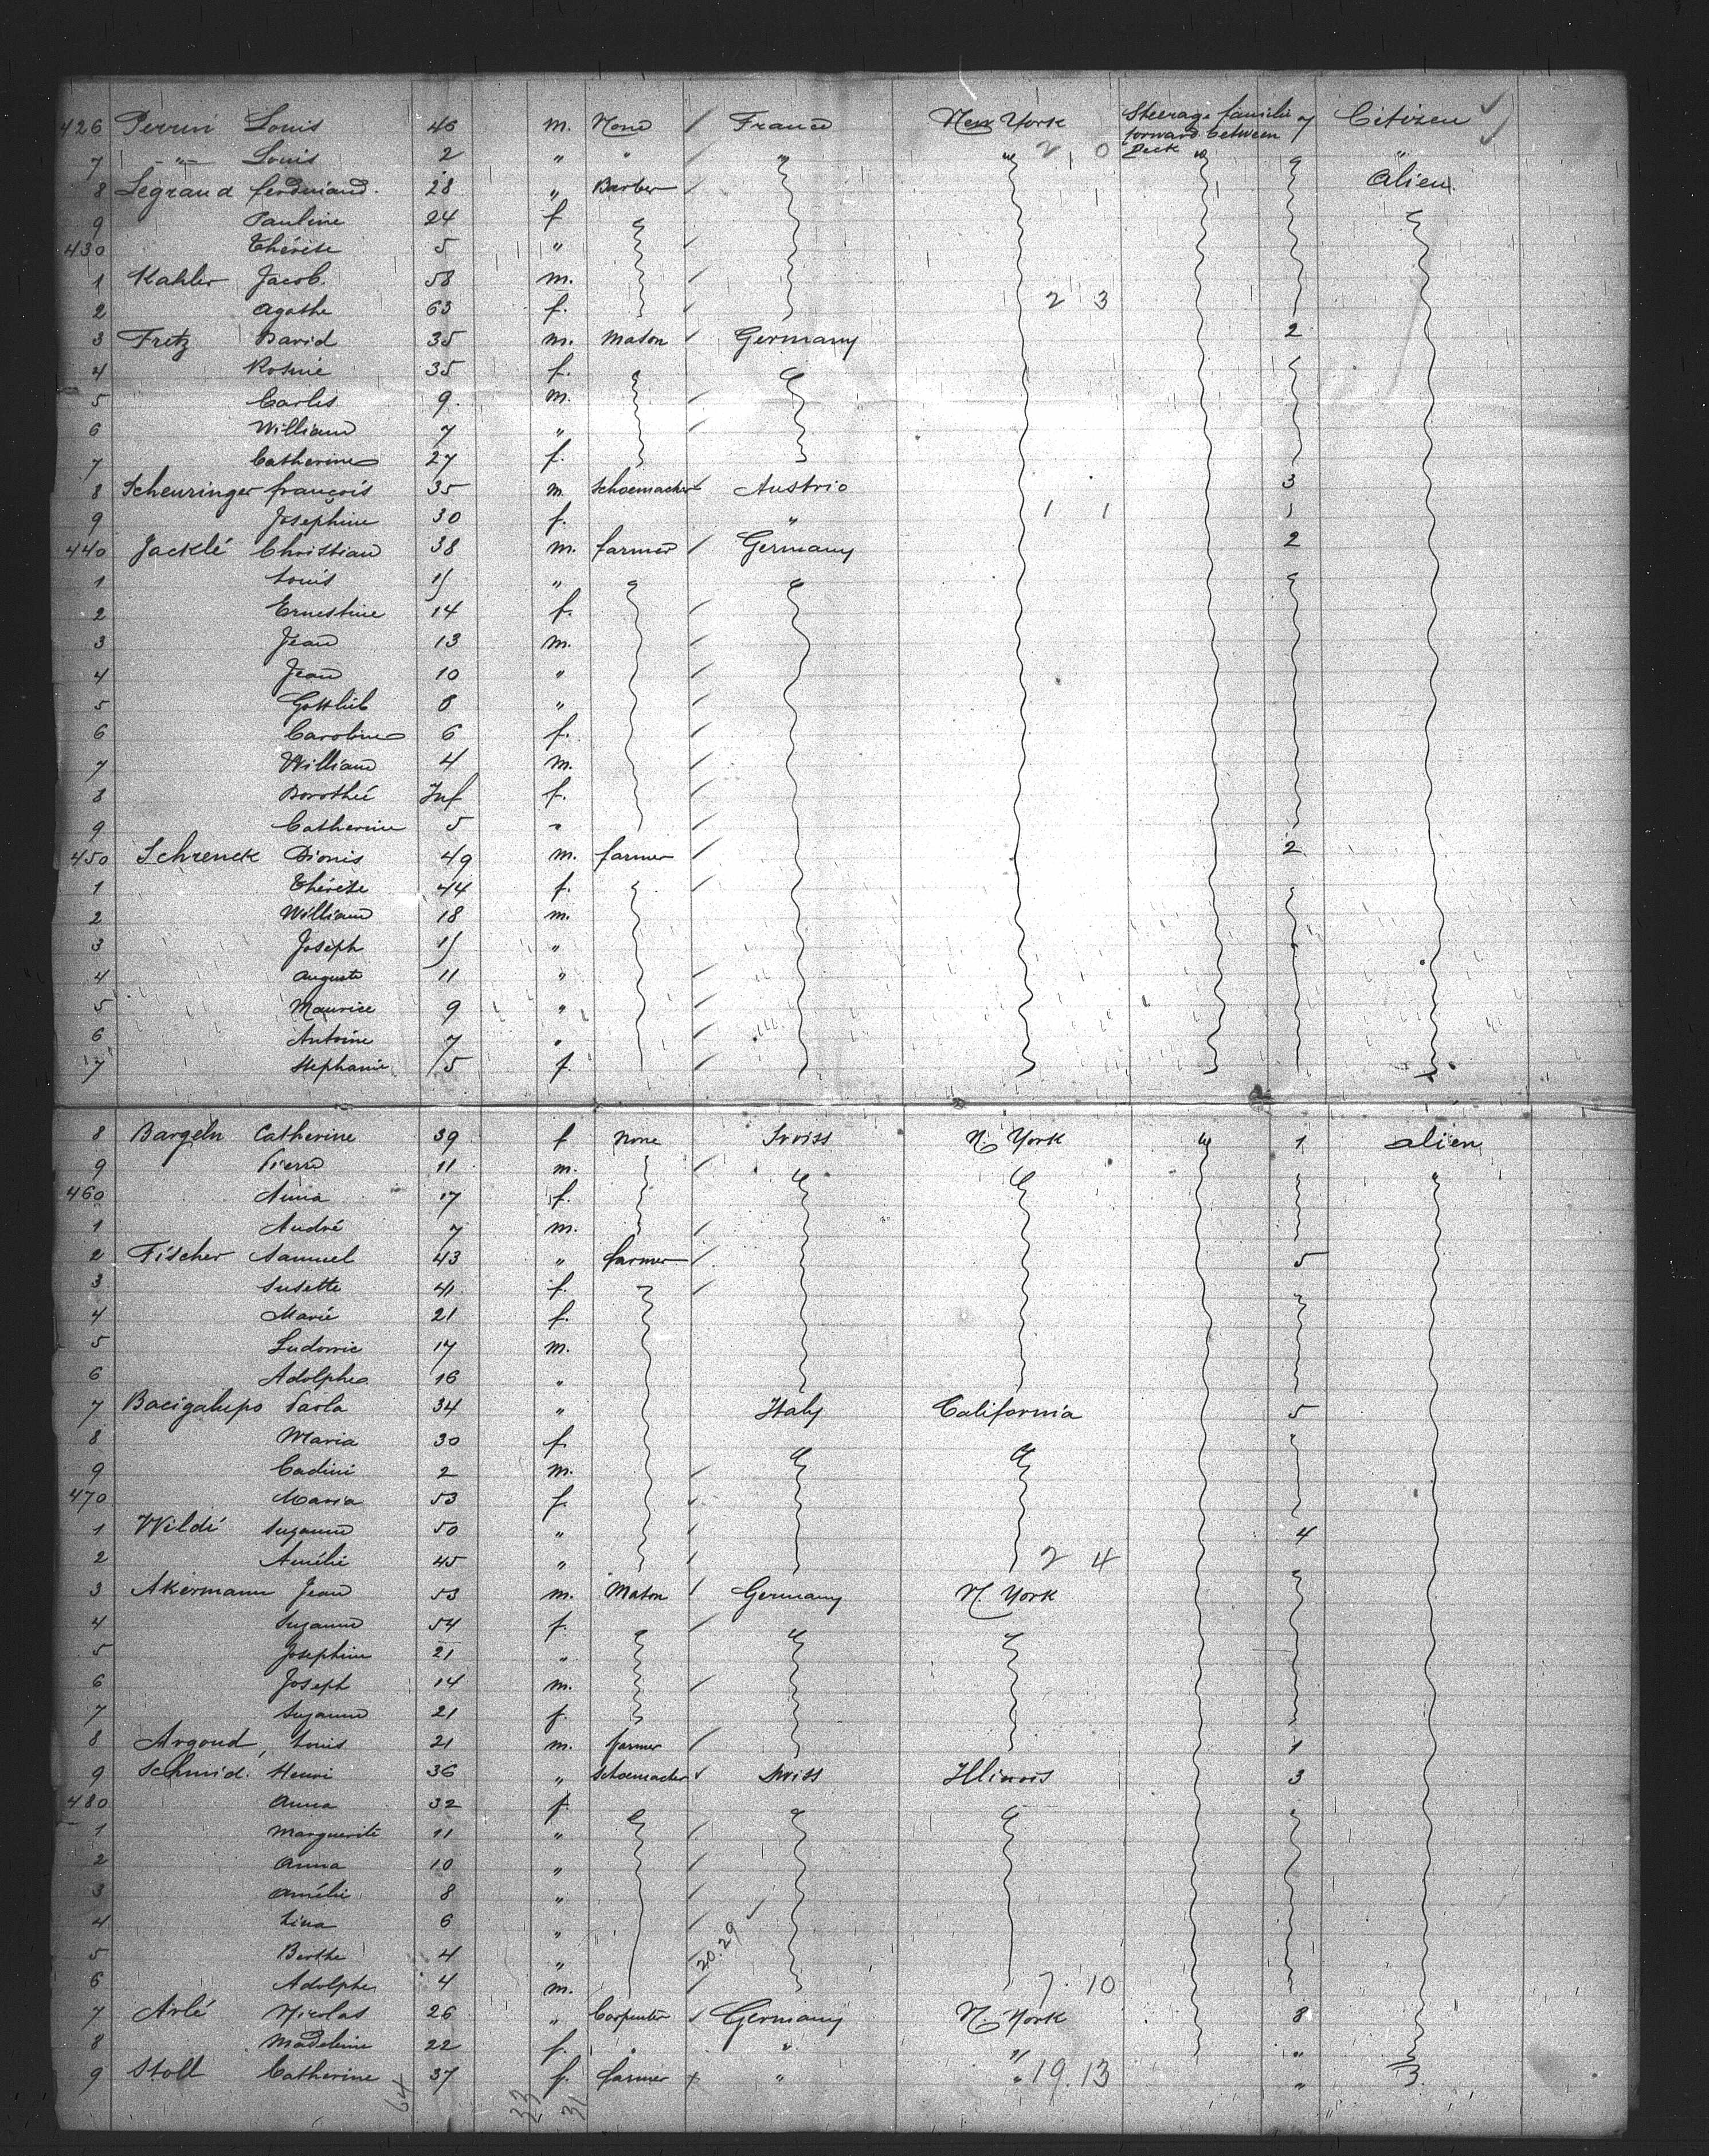 426 Perrin Louis 46 m. None France New York Steerage familie forward between Deck 7 Citizen
7 -"- Louis 2 " " " " " "
8 Legrand ferdinand. 28 " Barber Alien
9 Pauline 24 f
430 Thérèse 5 "
1 Kahler Jacob. 58 m.
2 Agathe 63 f. 2 3
3 Fretz David 35 m. Mason Germany 2
4 Rosine 35 f.
5 Carles 9 m.
6 William 7 "
7 Catherine 27 f.
8 Scheuringer françois 35 m. Schoemacher Austria 3
9 Josephine 30 f. " 1 1
440 Jacklé Christian 38 m. farmer Germany 2
1 Louis "
2 Ernestine 14 f.
3 Jean 13 m.
4 Jean 10 "
5 Gottlieb 8 "
6 Caroline 6 f.
7 William 4 m.
8 Dorothée Inf f.
9 Catherine 5 "
450 Schrenck Dionis 49 m. farmer 2
1 Thérèse 44 f.
2 William 18 m.
3 Joseph "
4 Auguste 11 "
5 Maurice 9 "
6 Antoine 7 "
7 Stephanie 5 f.
8 Bargeln Catherine 39 f None Swiss N. York " 1 alien
9 Pierre 11 m.
460 Anna 17 f.
1 André 7 m.
2 Fischer Samuel 43 " farmer 5
3 Susette 41 f.
4 Marie 21 f.
5 Ludovic 17 m.
6 Adolphe 16 "
7 Bacigalupo Paola 34 " Italy California 5
8 Maria 30 f.
9 Cadini 2 m.
470 Maria 53 f.
1 Wildé Suzanne 50 " 4
2 Amélie 45 " 2 4
3 Akermann Jean 53 m. Mason Germany N. York
4 Suzanne 54 f.
5 Josephine 21 "
6 Joseph 14 m.
7 Suzanne 21 f.
8 Argoud Louis 21 m. farmer 1
9 Schmid. Henri 36 " Schoemacher Swiss Illinois 3
480 Anna 32 f.
1 Marguerite 11 "
2 Anna 10 "
3 Amélie 8 "
4 Lina 6 "
5 Berthe 4 " 20.29
6 Adolphe 4 m. 7. 10
7 Arlé Nicolas 26 " Carpenter Germany N. York 8
8 Madeleine 22 f. " " " "
9 Stoll Catherine 37 f. farmer " " 19.13 "
64 33 31